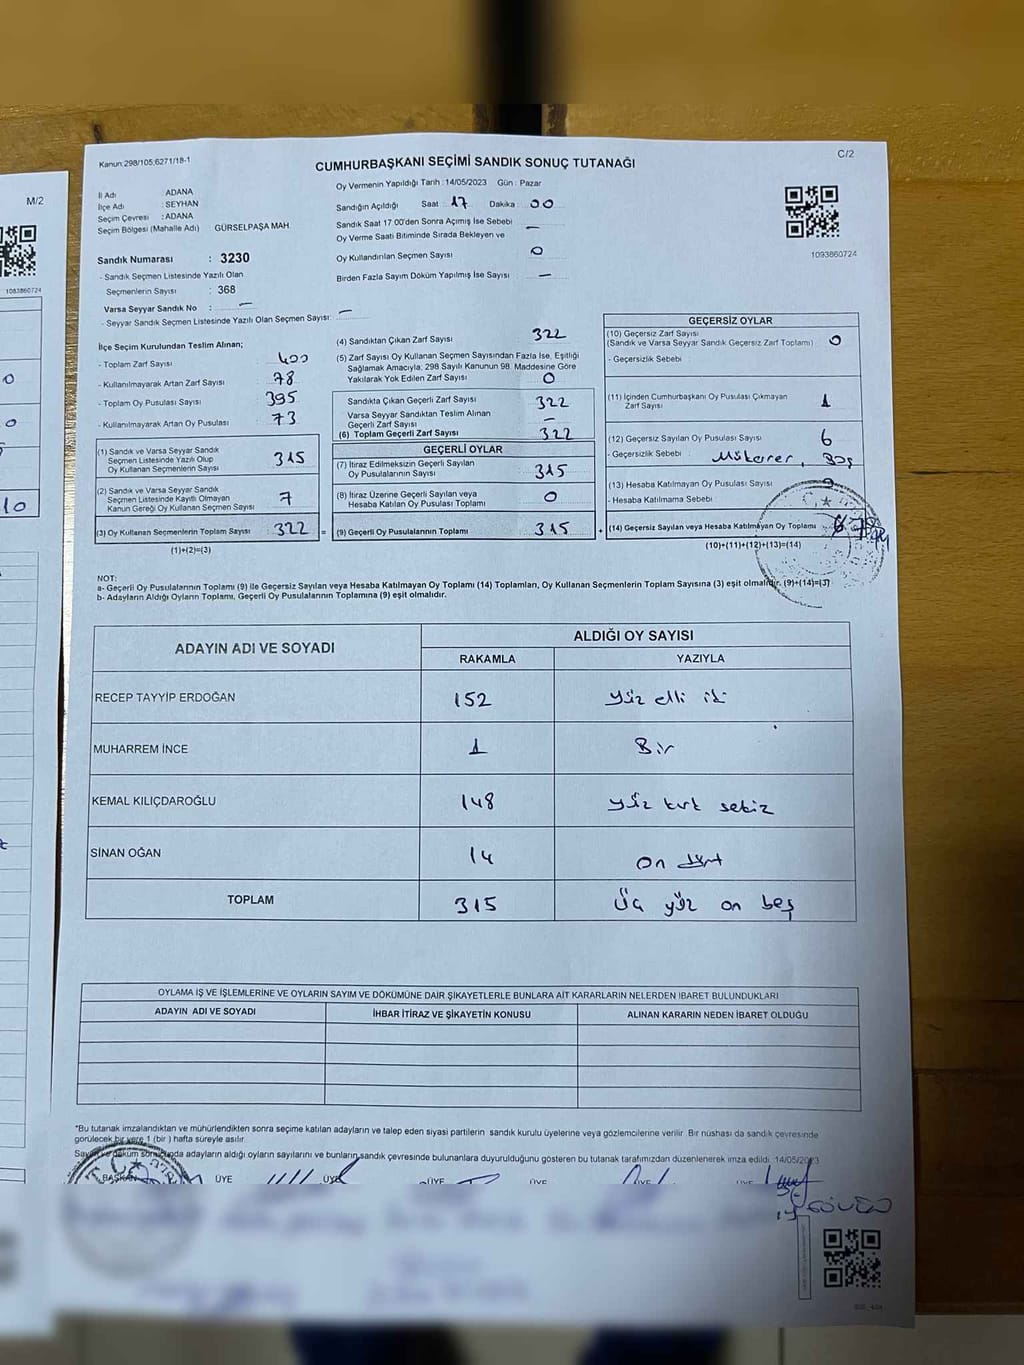 Kanun:298/105;6271/18-1
C/2
CUMHURBAŞKANI SEÇİMİ SANDIK SONUÇ TUTANAĞI
M/2
1093860724
0
0
10
İl Adı : ADANA
İlçe Adı : SEYHAN
Seçim Çevresi : ADANA
Seçim Bölgesi (Mahalle Adı) GÜRSELPAŞA MAH.
Sandık Numarası : 3230
- Sandık Seçmen Listesinde Yazılı Olan
Seçmenlerin Sayısı : 368
Varsa Seyyar Sandık No : —
- Seyyar Sandık Seçmen Listesinde Yazılı Olan Seçmen Sayısı: —
Oy Vermenin Yapıldığı Tarih : 14/05/2023 Gün : Pazar
Sandığın Açıldığı Saat : 17 Dakika : 00
Sandık Saat 17:00'den Sonra Açımış İse Sebebi —
Oy Verme Saati Bitiminde Sırada Bekleyen ve
Oy Kullandırılan Seçmen Sayısı 0
Birden Fazla Sayım Döküm Yapılmış İse Sayısı —
1093860724
İlçe Seçim Kurulundan Teslim Alınan;
- Toplam Zarf Sayısı 400
- Kullanılmayarak Artan Zarf Sayısı 78
- Toplam Oy Pusulası Sayısı 395
- Kullanılmayarak Artan Oy Pusulası 73
(1) Sandık ve Varsa Seyyar Sandık
Seçmen Listesinde Yazılı Olup
Oy Kullanan Seçmenlerin Sayısı 315
(2) Sandık ve Varsa Seyyar Sandık
Seçmen Listesinde Kayıtlı Olmayan
Kanun Gereği Oy Kullanan Seçmen Sayısı 7
(3) Oy Kullanan Seçmenlerin Toplam Sayısı 322 =
(1)+(2)=(3)
(4) Sandıktan Çıkan Zarf Sayısı 322
(5) Zarf Sayısı Oy Kullanan Seçmen Sayısından Fazla İse, Eşitliği
Sağlamak Amacıyla, 298 Sayılı Kanunun 98. Maddesine Göre
Yakılarak Yok Edilen Zarf Sayısı 0
Sandıkta Çıkan Geçerli Zarf Sayısı 322
Varsa Seyyar Sandıktan Teslim Alınan
Geçerli Zarf Sayısı —
(6) Toplam Geçerli Zarf Sayısı 322
GEÇERLİ OYLAR
(7) İtiraz Edilmeksizin Geçerli Sayılan
Oy Pusulalarının Sayısı 315
(8) İtiraz Üzerine Geçerli Sayılan veya
Hesaba Katılan Oy Pusulası Toplamı 0
(9) Geçerli Oy Pusulalarının Toplamı 315 +
GEÇERSİZ OYLAR
(10) Geçersiz Zarf Sayısı
(Sandık ve Varsa Seyyar Sandık Geçersiz Zarf Toplamı) 0
- Geçersizlik Sebebi
(11) İçinden Cumhurbaşkanı Oy Pusulası Çıkmayan
Zarf Sayısı 1
(12) Geçersiz Sayılan Oy Pusulası Sayısı 6
- Geçersizlik Sebebi Mükerrer, Boş
(13) Hesaba Katılmayan Oy Pusulası Sayısı 0
- Hesaba Katılmama Sebebi
(14) Geçersiz Sayılan veya Hesaba Katılmayan Oy Toplamı 7
(10)+(11)+(12)+(13)=(14)
NOT:
a- Geçerli Oy Pusulalarının Toplamı (9) ile Geçersiz Sayılan veya Hesaba Katılmayan Oy Toplamı (14) Toplamları, Oy Kullanan Seçmenlerin Toplam Sayısına (3) eşit olmalıdır. (9)+(14)=(3)
b- Adayların Aldığı Oyların Toplamı, Geçerli Oy Pusulalarının Toplamına (9) eşit olmalıdır.
ADAYIN ADI VE SOYADI
ALDIĞI OY SAYISI
RAKAMLA YAZIYLA
RECEP TAYYİP ERDOĞAN 152 yüz elli iki
MUHARREM İNCE 1 Bir
KEMAL KILIÇDAROĞLU 148 yüz kırk sekiz
SİNAN OĞAN 14 on dört
TOPLAM 315 üç yüz on beş
OYLAMA İŞ VE İŞLEMLERİNE VE OYLARIN SAYIM VE DÖKÜMÜNE DAİR ŞİKAYETLERLE BUNLARA AİT KARARLARIN NELERDEN İBARET BULUNDUKLARI
ADAYIN ADI VE SOYADI İHBAR İTİRAZ VE ŞİKAYETİN KONUSU ALINAN KARARIN NEDEN İBARET OLDUĞU
*Bu tutanak imzalandıktan ve mühürlendikten sonra seçime katılan adayların ve talep eden siyasi partilerin sandık kurulu üyelerine veya gözlemcilerine verilir. Bir nüshası da sandık çevresinde
görülecek bir yere 1 (bir) hafta süreyle asılır.
Sayım ve döküm sonucunda adayların aldığı oyların sayılarını ve bunların sandık çevresinde bulunanlara duyurulduğunu gösteren bu tutanak tarafımızdan düzenlenerek imza edildi. 14/05/2023
BAŞKAN ÜYE ÜYE ÜYE ÜYE ÜYE